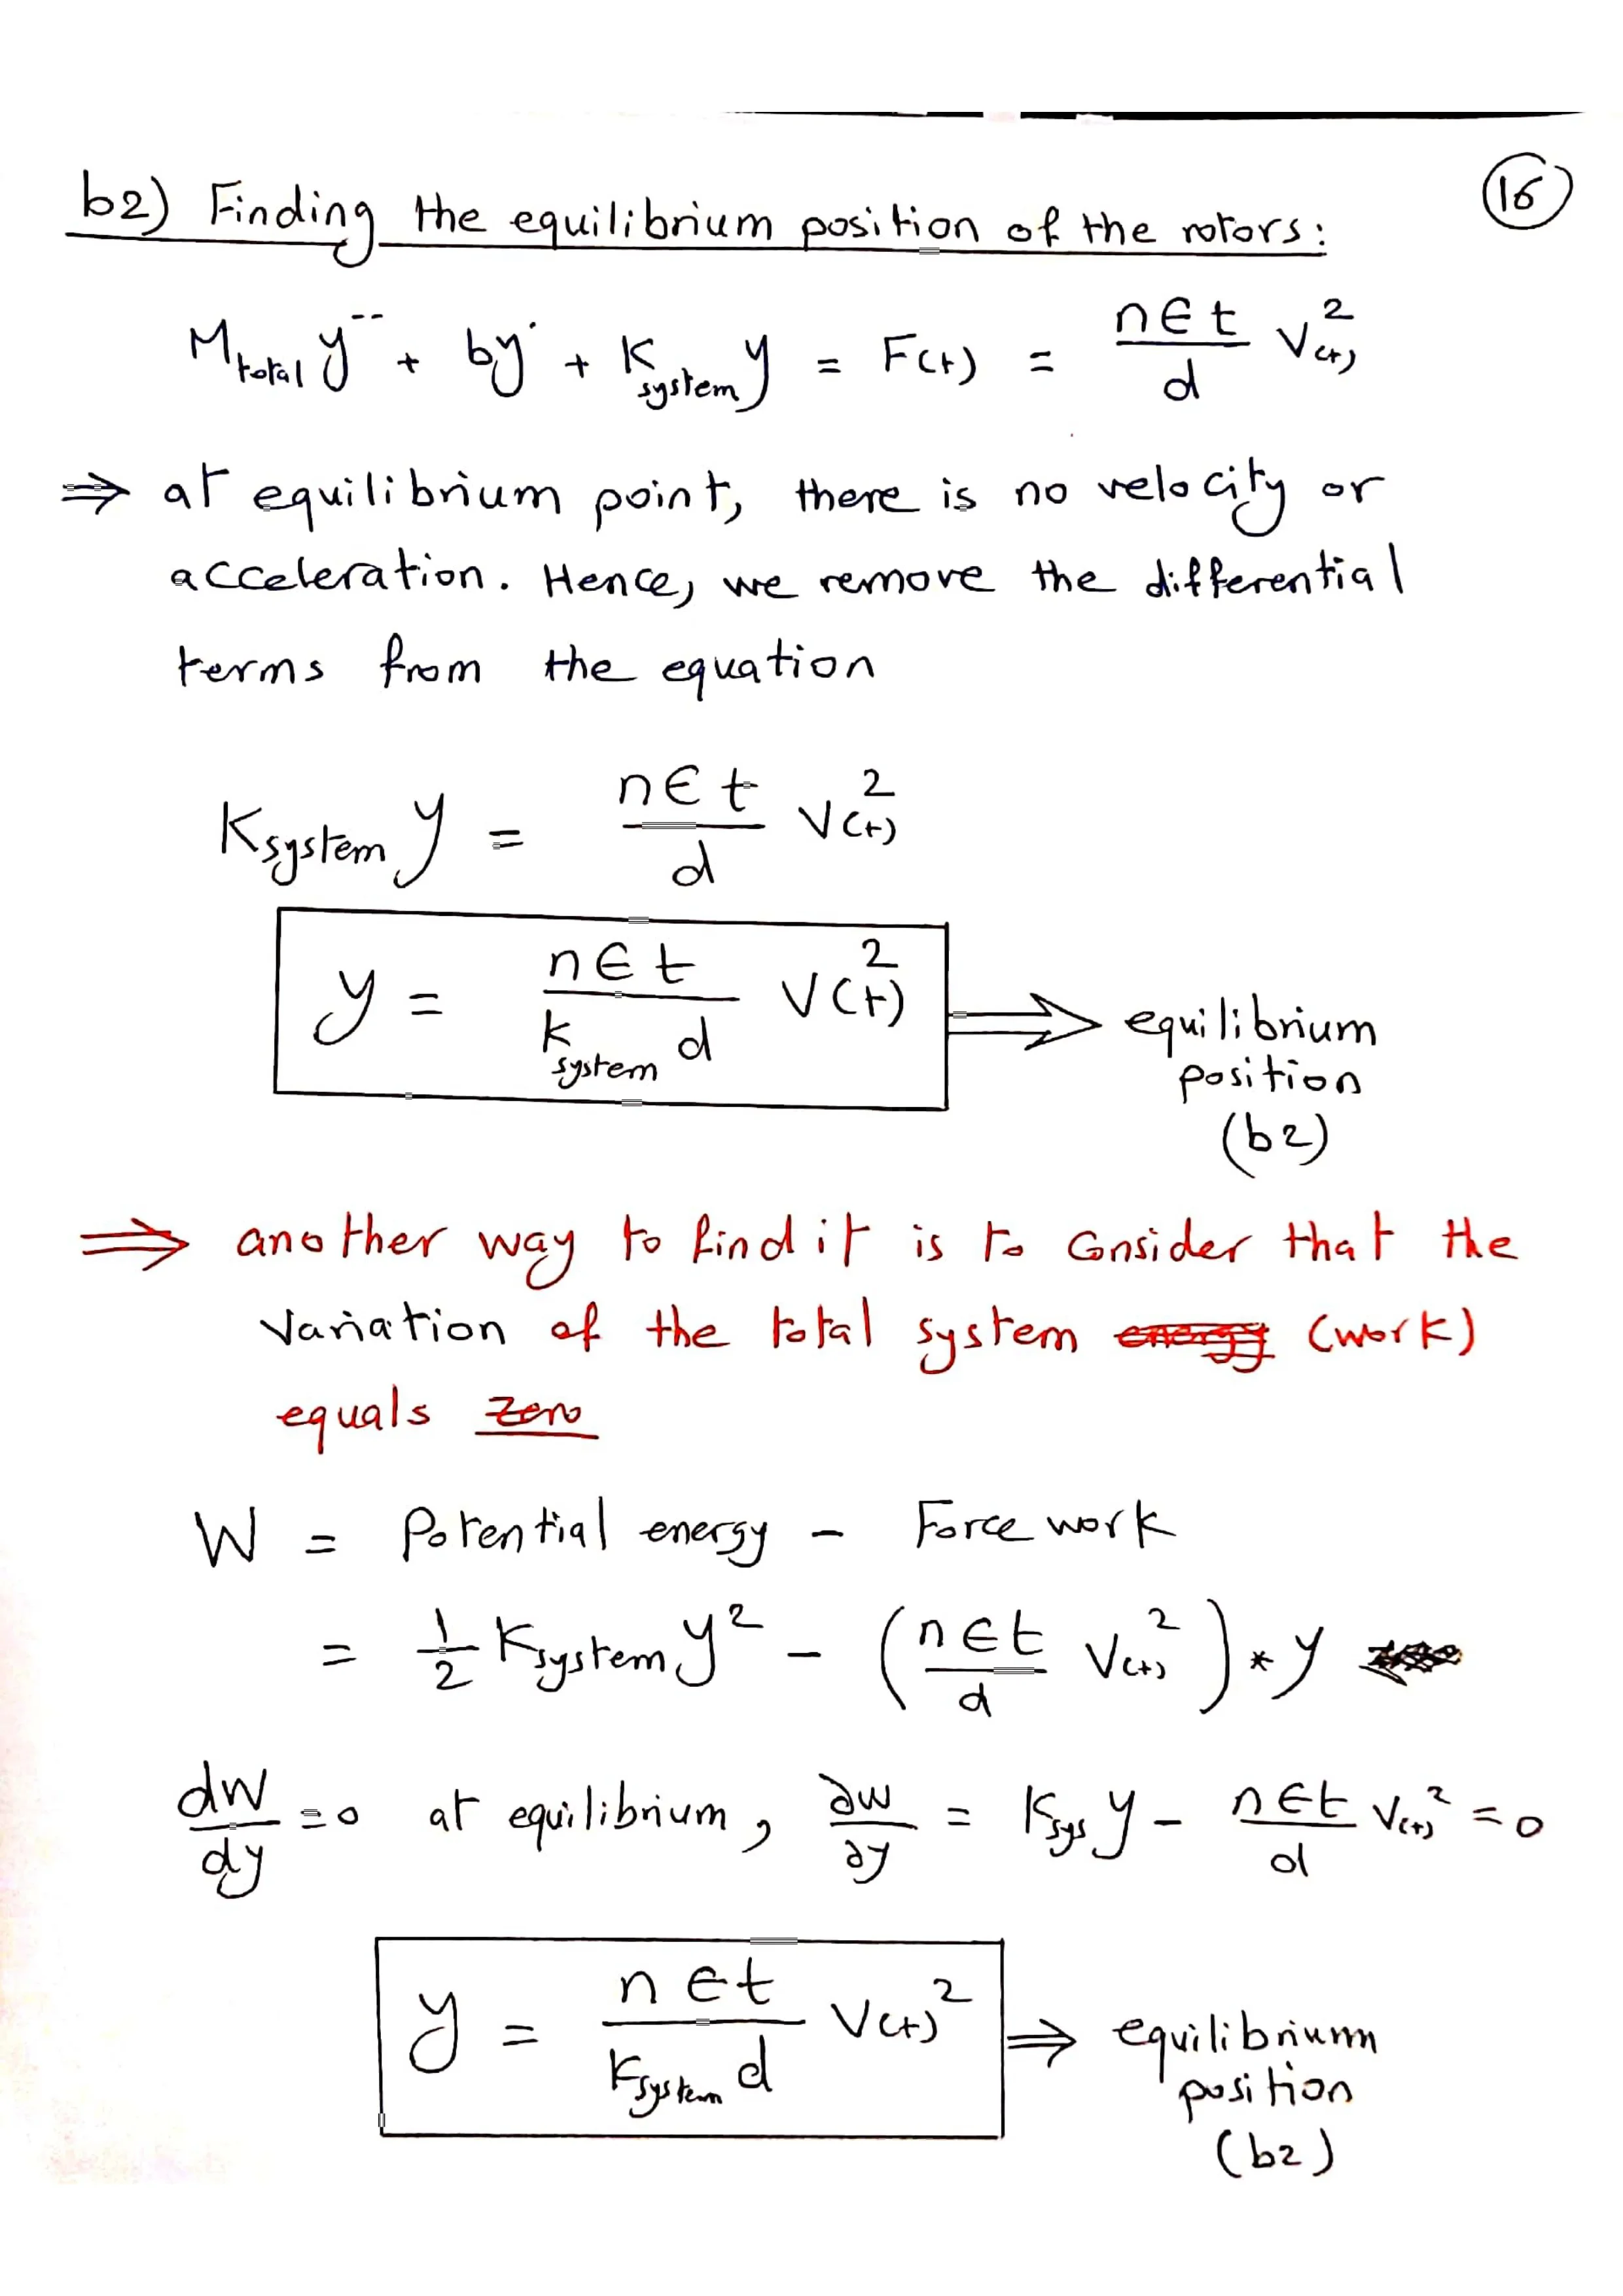 (16)
b2) Finding the equilibrium position of the rotors:
M_total y¨ + by˙ + K_system y = F(t) = nϵt/d V(t)²
⇒ at equilibrium point, there is no velocity or
acceleration. Hence, we remove the differential
terms from the equation
K_system y = nϵt/d V(t)²
y = nϵt/(k_system d) V(t)² ⇒ equilibrium
position
(b2)
⇒ another way to find it is to consider that the
variation of the total system energy (work)
equals zero
W = Potential energy - Force work
= 1/2 K_system y² - (nϵt/d V(t)²) * y
dW/dy = 0 at equilibrium, ∂W/∂y = K_sys y - nϵt/d V(t)² = 0
y = nϵt/(K_system d) V(t)² ⇒ equilibrium
position
(b2)